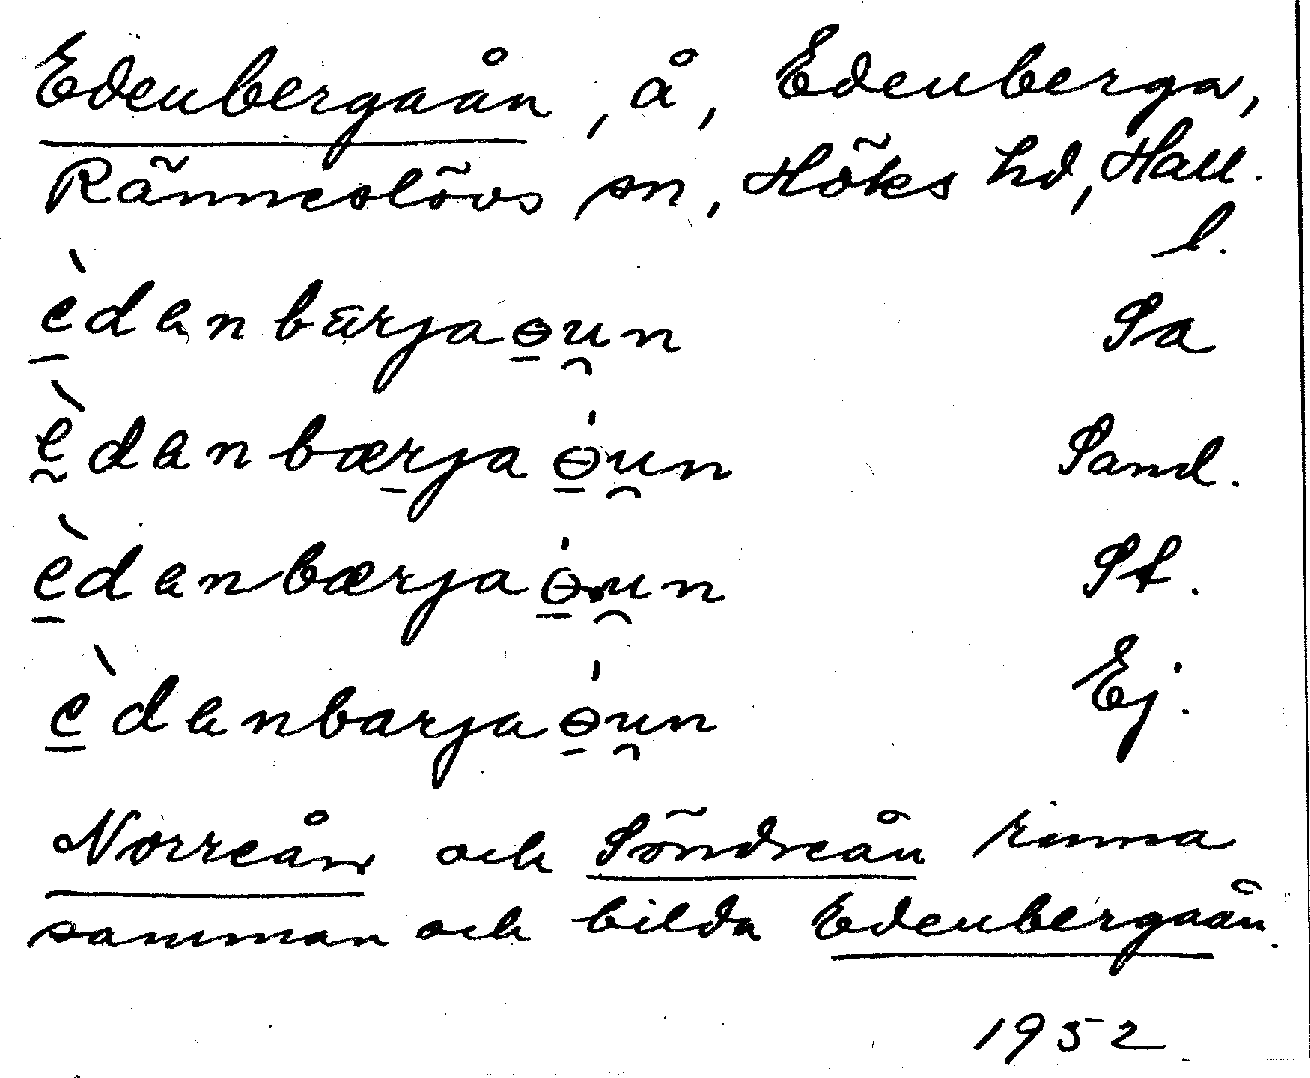 Edenbergaån, å, Edenberga,
Ränneslövs sn, Höks hd, Hall.
l.
è̱danbärjaɵ̱u̯n Sa
ḛ̀danbæṟjaɵ̱́u̯n Sand.
è̱danbærjaɵ̱́u̯n St.
è̱danbarjaɵ̱́u̯n Ej.
Norreån och Söndreån rinna
samman och bilda Edenbergaån.
1952